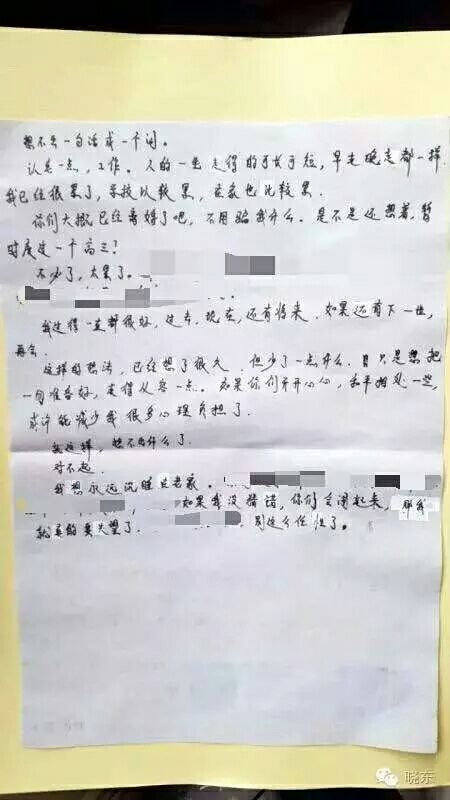 想不出一句话或一个词。
认真一点,工作。人的一生走得的可长可短,早走晚走都一样
我已经很累了,学校比较累,在家也比较累
你们大概已经离婚了吧,不用骗我什么。是不是还想着,暂
时度过一个高三?
不少了,太累了。
我过得一直都很好,过去,现在,还有将来,如果还有下一世,
再会。
这样的想法,已经想了很久,但少了一点什么,只是想把
一切准备好,走得从容一点。如果你们开开心心,和平相处一些,
或许能减少我很多心理负担了。
就这样,想不出什么了。
对不起。
我想永远沉睡在老家。
如果我没猜错,你们会闹起来,那我
就真的要失望了。 别这么任性了。
晓东